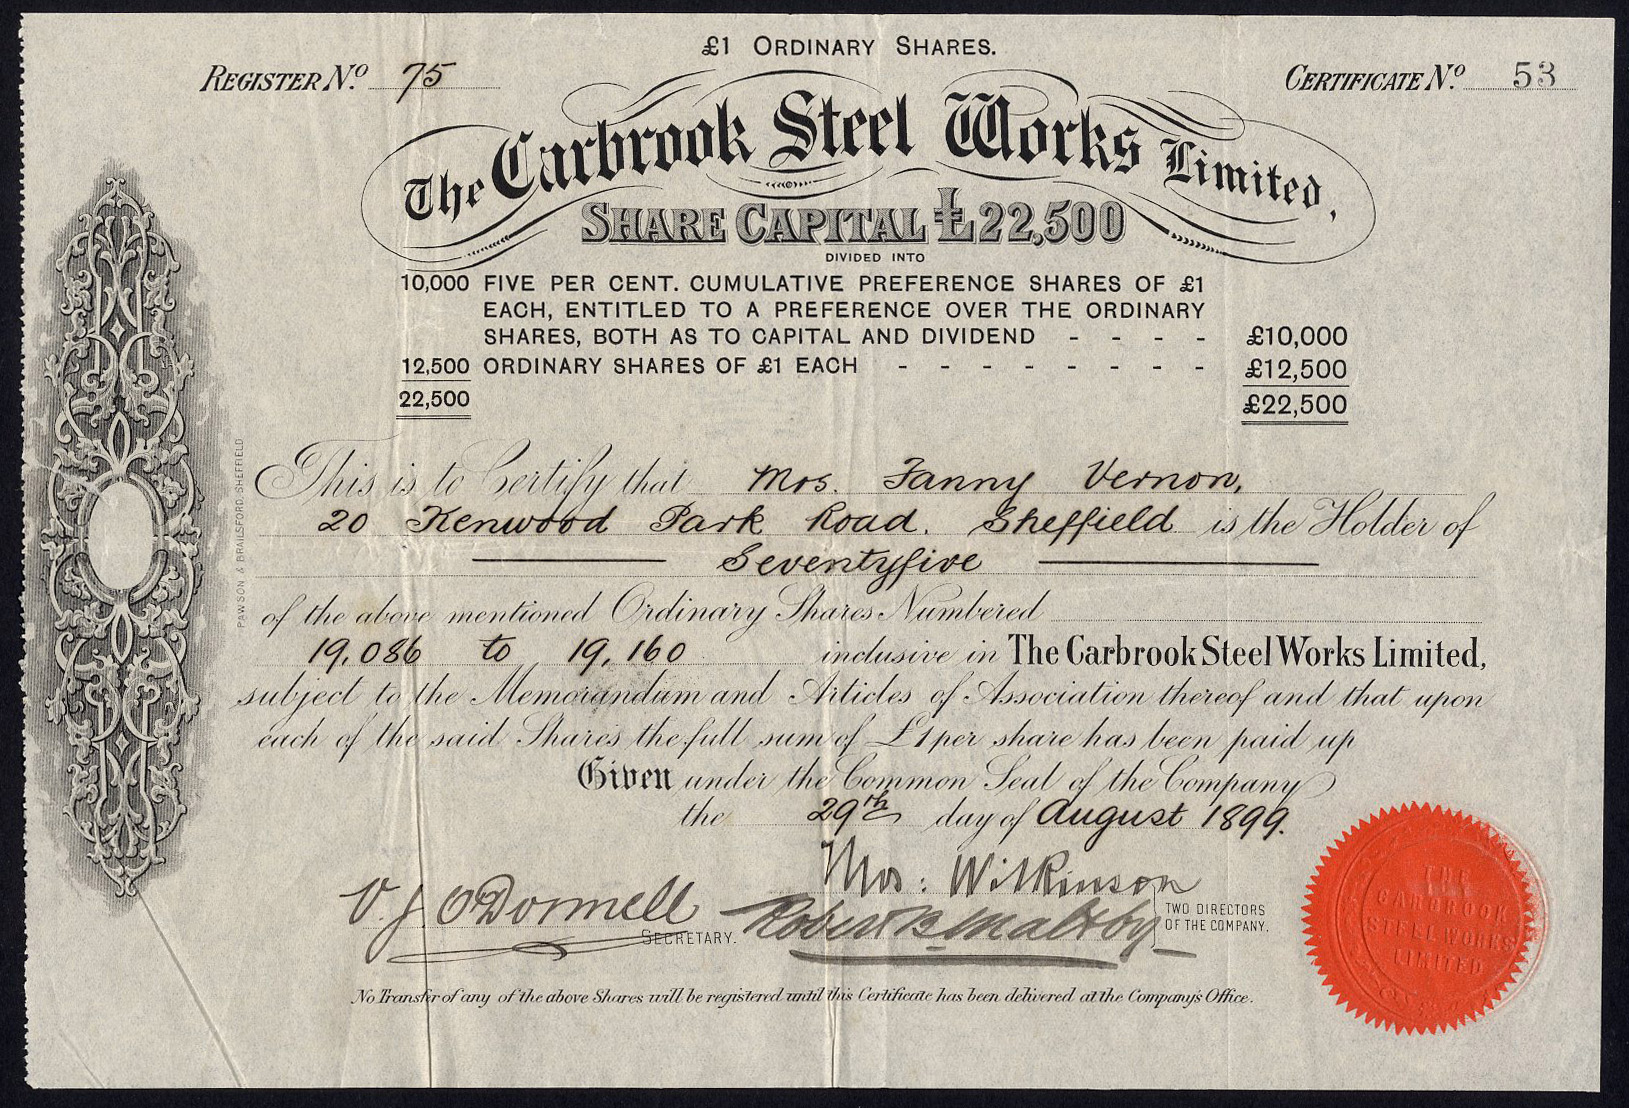 £1 ORDINARY SHARES.
REGISTER No. 75
CERTIFICATE No. 53
The Carbrook Steel Works Limited,
SHARE CAPITAL £22,500
DIVIDED INTO
10,000 FIVE PER CENT. CUMULATIVE PREFERENCE SHARES OF £1
EACH, ENTITLED TO A PREFERENCE OVER THE ORDINARY
SHARES, BOTH AS TO CAPITAL AND DIVIDEND - - - - £10,000
12,500 ORDINARY SHARES OF £1 EACH - - - - - - - - £12,500
22,500 £22,500
This is to Certify that Mrs. Fanny Vernon,
20 Kenwood Park Road. Sheffield is the Holder of
Seventyfive
of the above mentioned Ordinary Shares Numbered
19,086 to 19,160 inclusive in The Carbrook Steel Works Limited,
subject to the Memorandum and Articles of Association thereof and that upon
each of the said Shares the full sum of £1 per share has been paid up
Given under the Common Seal of the Company
the 29th day of August 1899.
V. J. O'Donnell
SECRETARY.
Mos: Wilkinson
Robert B Maltby
TWO DIRECTORS
OF THE COMPANY.
No Transfer of any of the above Shares will be registered until this Certificate has been delivered at the Company's Office.
PAWSON & BRAILSFORD, SHEFFIELD
THE
CARBROOK
STEEL WORKS
LIMITED